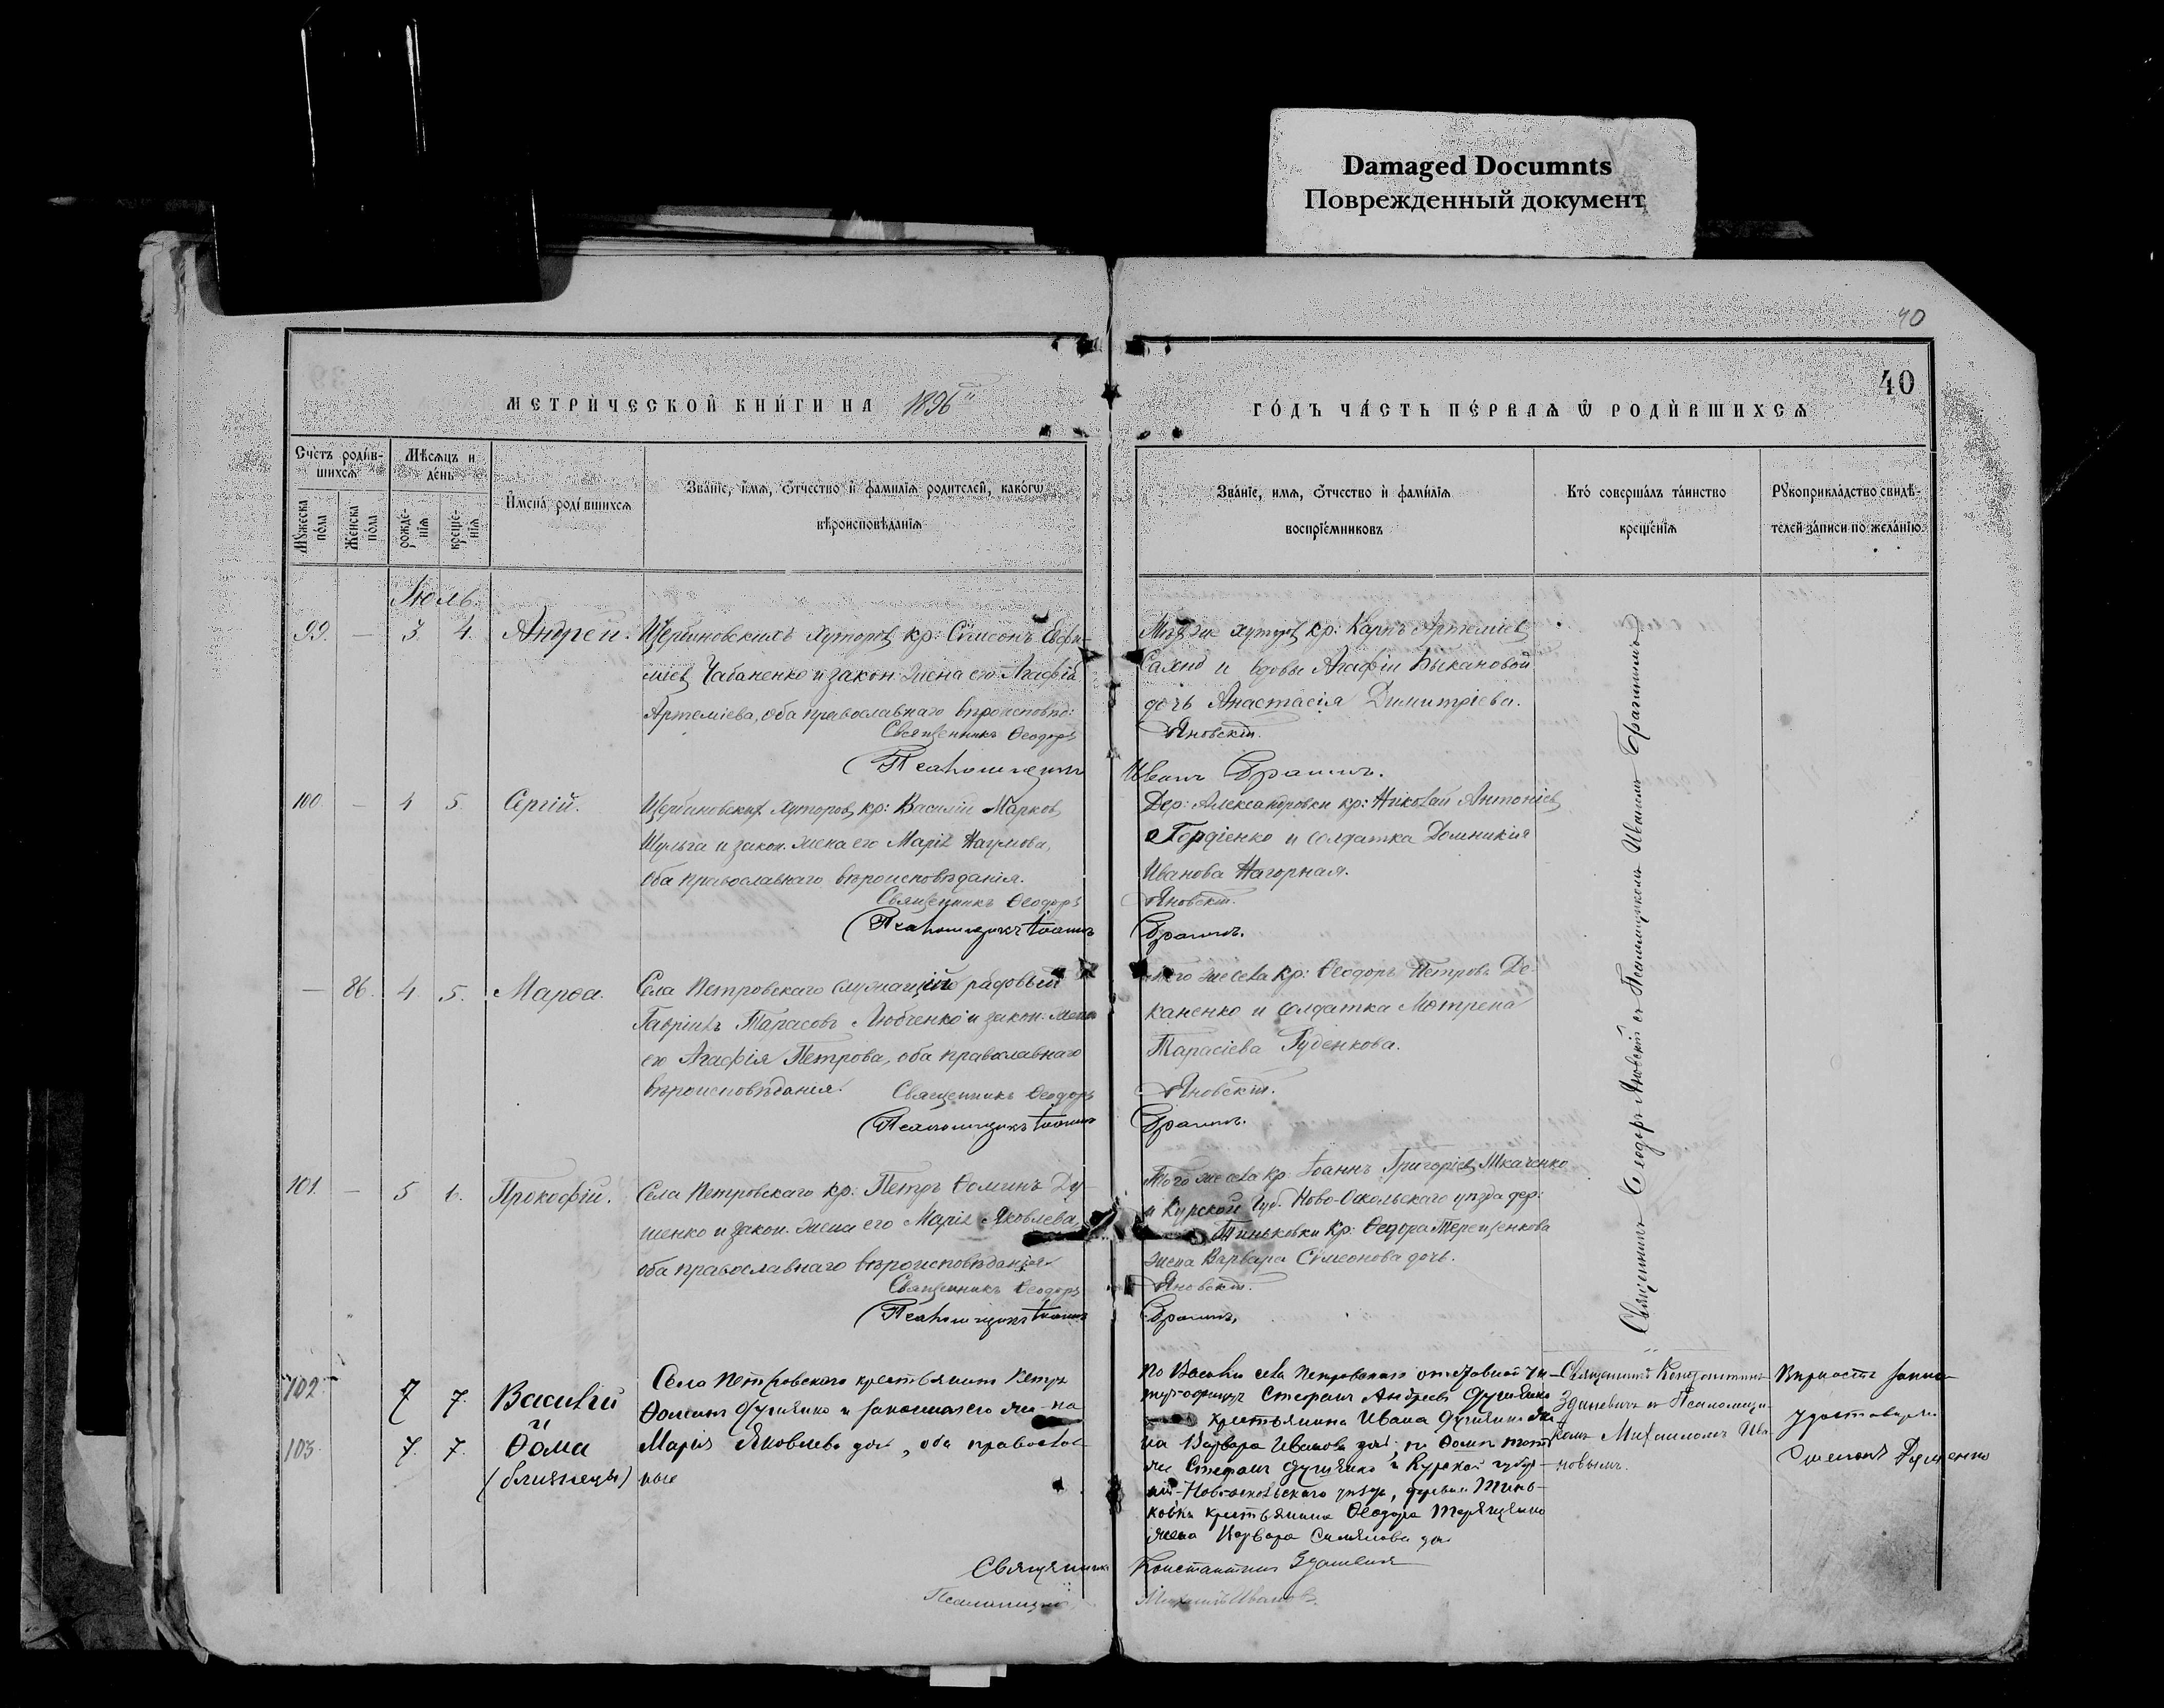 Damaged Documnts
Поврежденный документ
40
40
МЕТРИ́ЧЕСКОЙ КНИ́ГИ НА 1896
ГО́ДЪ ЧА́СТЬ ПЕ́РВАѦ Ѡ҆ РОДИ́ВШИХСѦ
Сче́тъ роди́в-
шихсѧ
Мѣ́сѧцъ и
де́нь
Мꙋ́жеска
по́ла
Же́нска
по́ла
рожде́-
нїѧ
креще́-
нїѧ
И҆мена̀ роди́вшихсѧ
Зва́нїе, и҆́мѧ, ѻ҆́тчество и҆ фами́лїѧ роди́телей, како́гѡ
вѣроисповѣ́данїѧ
Зва́нїе, имѧ, ѻ҆́тчество и҆ фами́лїѧ
воспрїе́мниковъ
Кто̀ соверша́лъ та́инство
креще́нїѧ
Рꙋкоприкла́дство свидѣ́-
телей за́писи по жела́нїю.
Іюль.
99. — 3. 4. Андрей. Щербиновскихъ хуторовъ кр: Сѵмеонъ Евфи-
міевъ Чабаненко и закон. жена его Агафія
Артеміева, оба православнаго вѣроисповѣд:
Священникъ Ѳеодоръ
Псаломщикъ
хуторовъ кр: Карпъ Артеміевъ
Сахно и вдовы Агафіи Быкановой
дочь Анастасія Димитріева.
Яновскій.
Иванъ
100. — 4 5. Сергій. Щербиновскихъ хуторовъ кр: Василій Марковъ
Шульга и закон. жена его Марія Наумова,
оба православнаго вѣроисповѣданія.
Священникъ Ѳеодоръ
Псаломщикъ Іоаннъ
Дер: Александровки кр: Николай Антоніевъ
Гордіенко и солдатка Домникія
Ивановa Нагорная.
Яновскій.
— 86. 4. 5. Марѳа. Села Петровскаго рядовый
Гавріилъ Тарасовъ Любченко и закон. жена
его Агафія Петрова, оба православнаго
вѣроисповѣданія. Священникъ Ѳеодоръ
Псаломщикъ Іоаннъ
того же села кр: Ѳеодоръ Петровъ Де-
каненко и солдатка Мотрена
Тарасіева Руденкова.
Яновскій.
101. — 5 6. Прокофій. Села Петровскаго кр: Петръ Ѳоминъ Ду-
шенко и закон. жена его Марія Яковлева,
оба православнаго вѣроисповѣданія.
Священникъ Ѳеодоръ
Псаломщикъ Іоаннъ
Того же села кр. Іоаннъ Григоріевъ Ткаченко
и Курской губ. Ново-Оскольскаго уѣзда дер:
Тиньковки кр: Ѳеодора Терещенкова
жена Варвара Сѵмеонова дочь.
Яновскій.
Священникъ Ѳеодоръ Яновскій съ Псаломщикомъ Иваномъ
102. 7 7. Василій
и
103. 7. 7. Ѳома
(близнецы)
Села Петровскаго крестьянинъ Петръ
Ѳоминъ Душенко и законная его же-на
Марія Яковлева доч, оба православ-
ные
По Василіи села Петровскаго отставной ун-
Стефанъ Андреевъ Душенко
крестьянина Ивана Душенко же-
на Варвара Иванова доч; по Ѳомѣ тотъ
же Стефанъ Душенко и Курской губер-
ніи Новооскольскаго уѣзда, деревни Тинь-
ковки крестьянина Ѳеодора Терещенко
жена Варвара Симеонова доч
Священникъ Константинъ
Здановичъ съ Псаломщи-
комъ Михаиломъ Ива-
новымъ.
Вѣрность записи
удостовѣряю
Душенко
Священникъ Константинъ Здановичъ
Псаломщикъ Михаилъ Ивановъ.